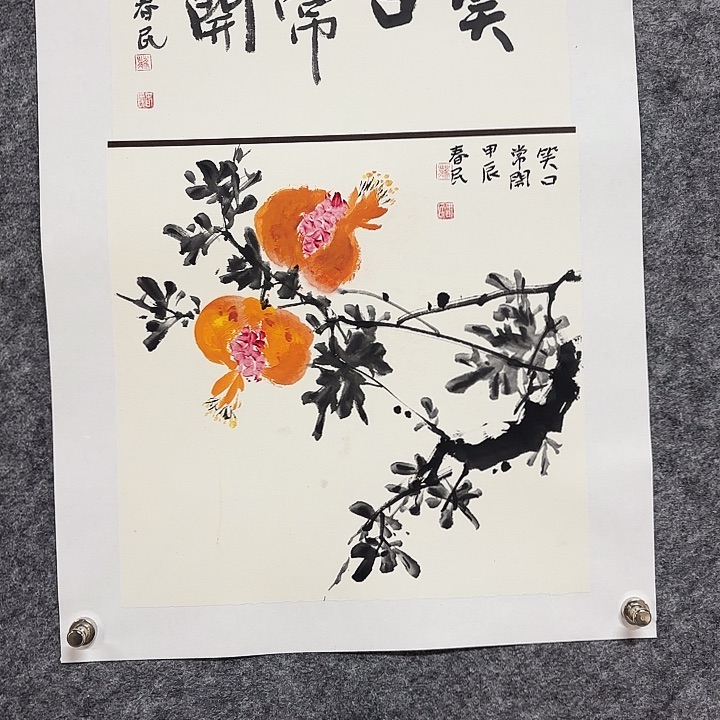 笑口常開
春民
笑口
常開
甲辰
春民